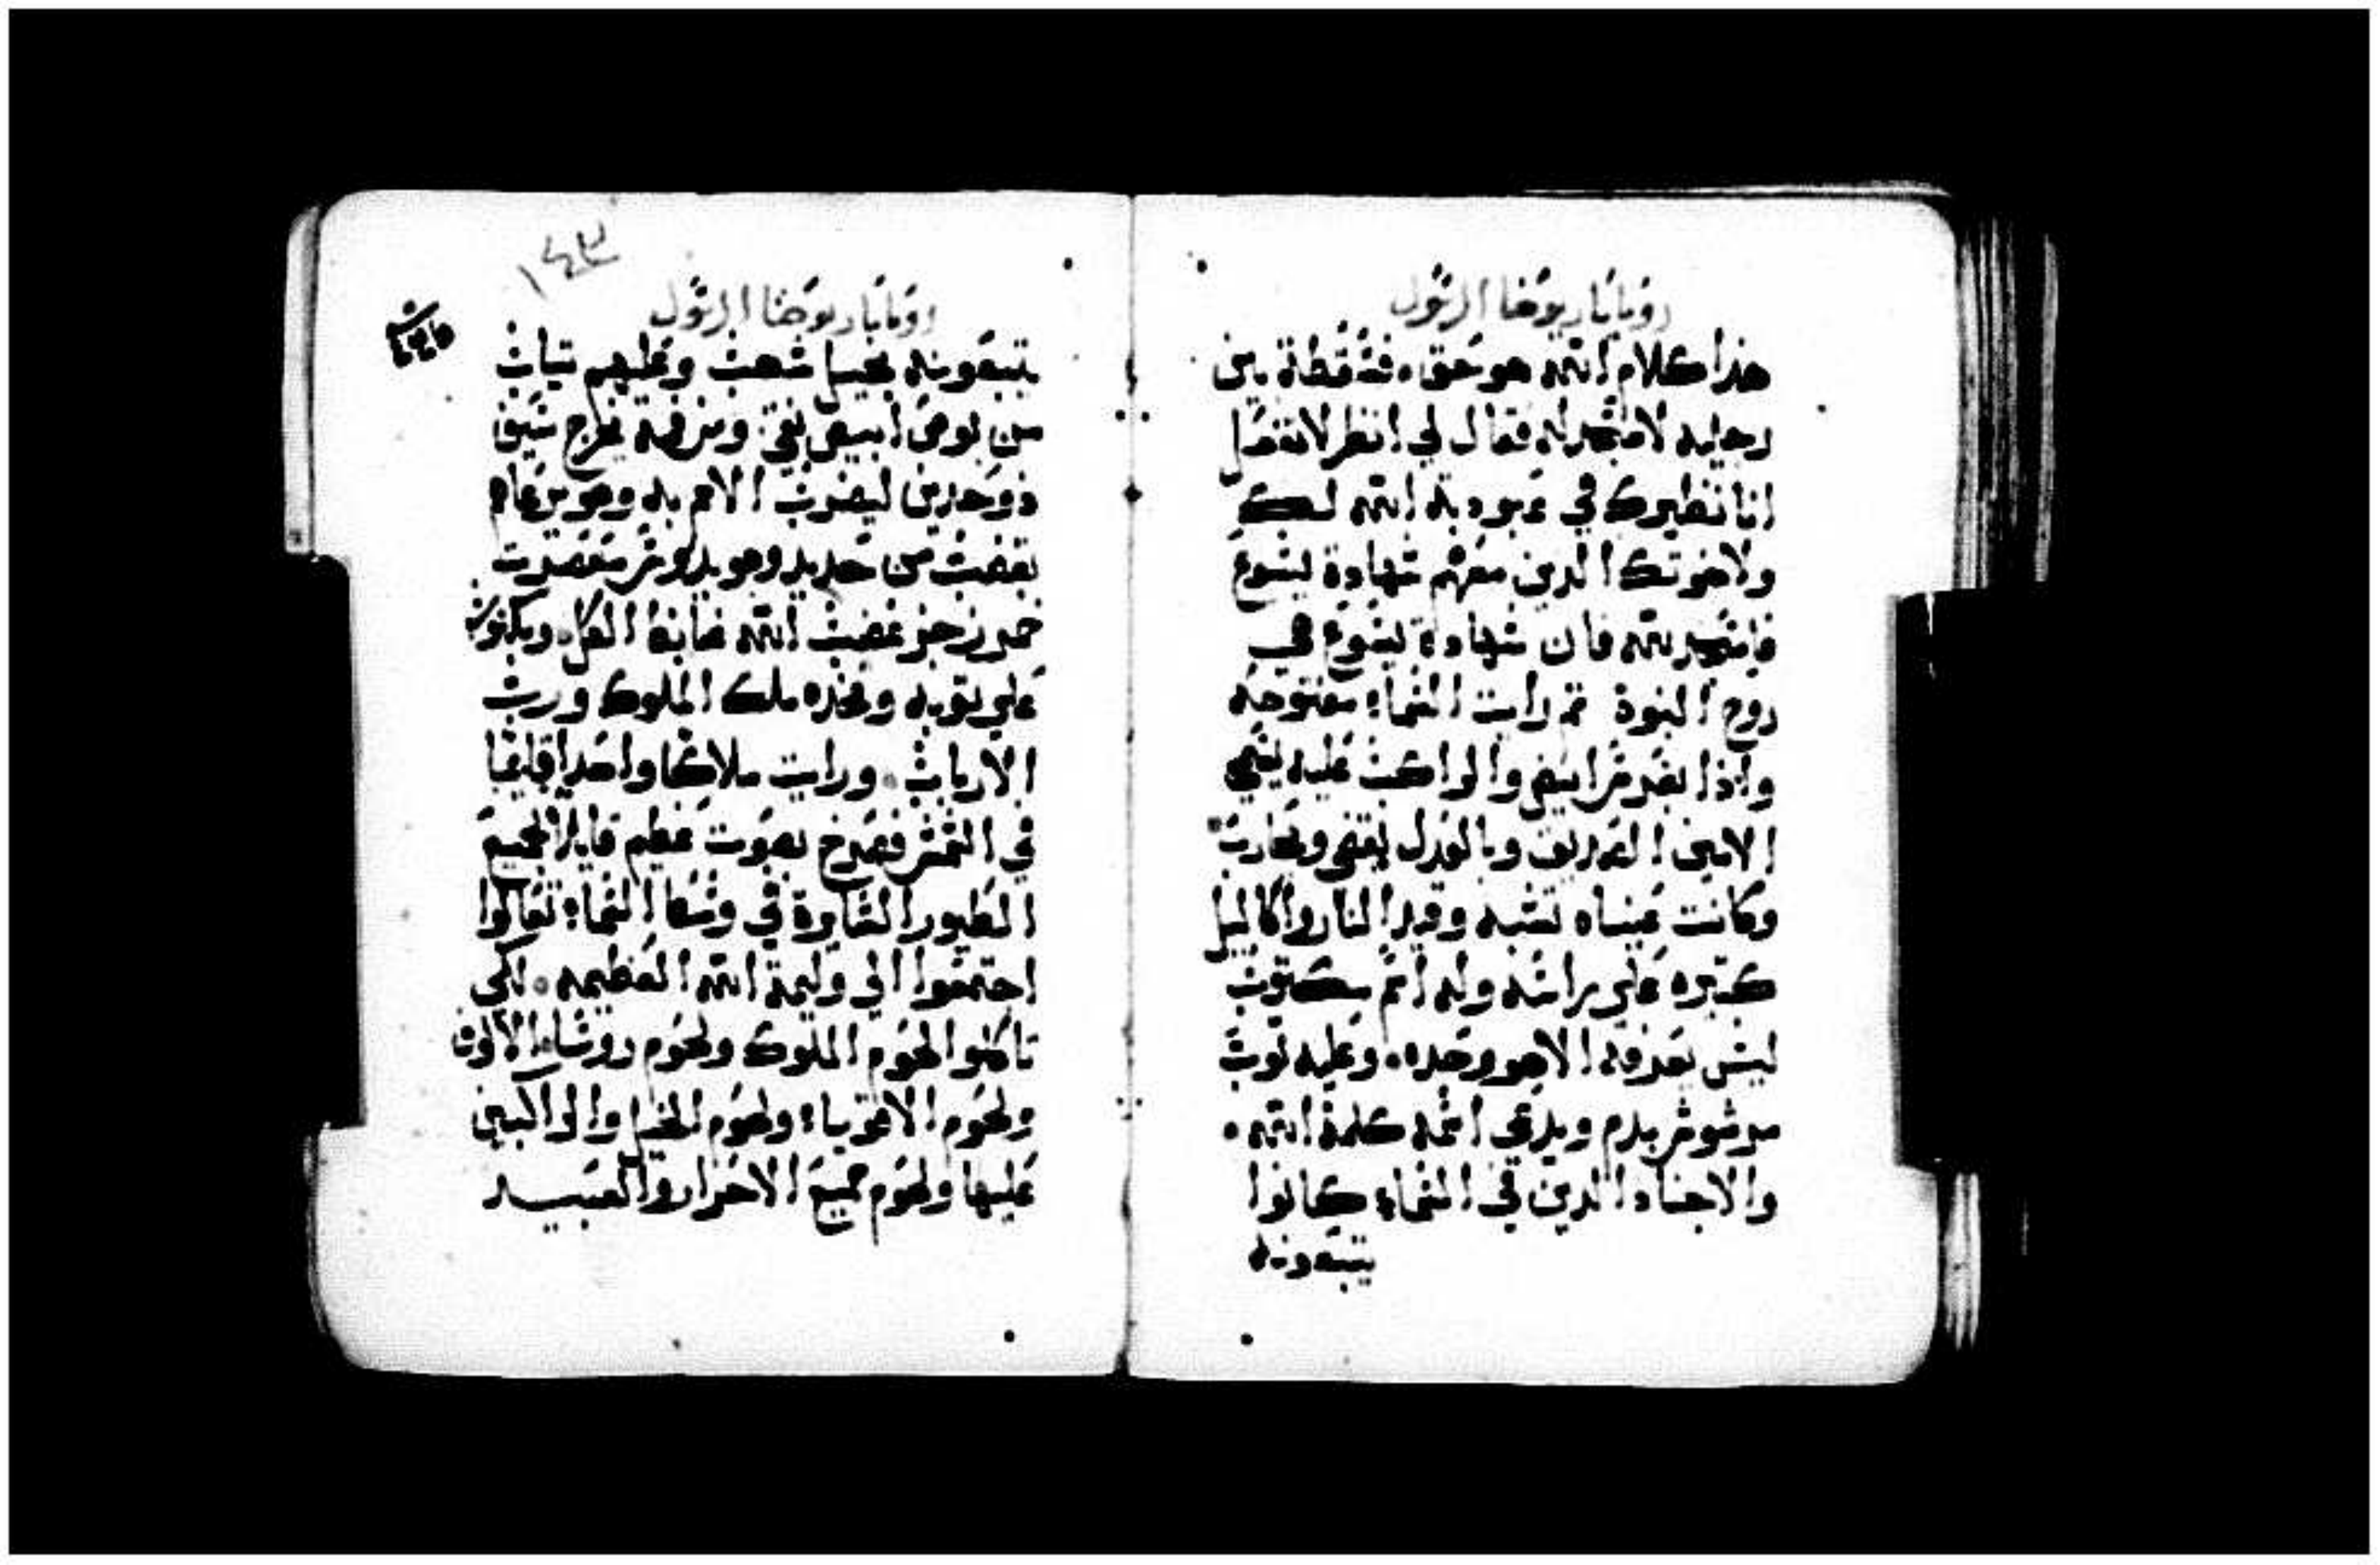 رويا مار يوحنا الرسول
هذا كلام الله هو حق. فسقطة بين
رجليه لاسجد له فقال لي انظر لا تفعل
انا نظيرك في عبودية الله لك
ولاخوتك الدين معهم شهادة يسوع
فاسجد لله فان شهادة يسوع هي
روح النبوة تم رايت السماء مفتوحه
واذا بفرس ابيض والراكب عليه يسمي
الامين الصديق وبالعدل يقضي ويحارب
وكانت عيناه تشبه وقيد النار واكاليل
كتيره علي راسه وله اسم مكتوب
ليس يعرفه الا هو وحده. وعليه توب
مرشوش بدم ويدعي اسمه كلمة الله.
والاجناد الدين في السماء كانوا
يتبعونه
١٤٣
رويا مار يوحنا الرسول
يتبعونه بخيل شهب وعليهم تياب
من بوص ابيض نقي. ومن فمه يخرج سيف
ذو حدين ليضرب الامم به وهو يرعاهم
بقضيب من حديد وهو يدوس معصرت
خمر رجز غضب الله ضابط الكل. ومكتوب
علي توبه وفخده ملك الملوك ورب
الارباب. ورايت ملاكا واحدا قايما
في الشمس فصرخ بصوت عظيم قايلا لجميع
الطيور الطايرة في وسط السماء تعالوا
اجتمعوا الي وليمة الله العظيمه. لكي
تاكلوا لحوم الملوك ولحوم روساء الالوف
ولحوم الاقوياء ولحوم الخيل والراكبين
عليها ولحوم جميع الاحرار والعبيد